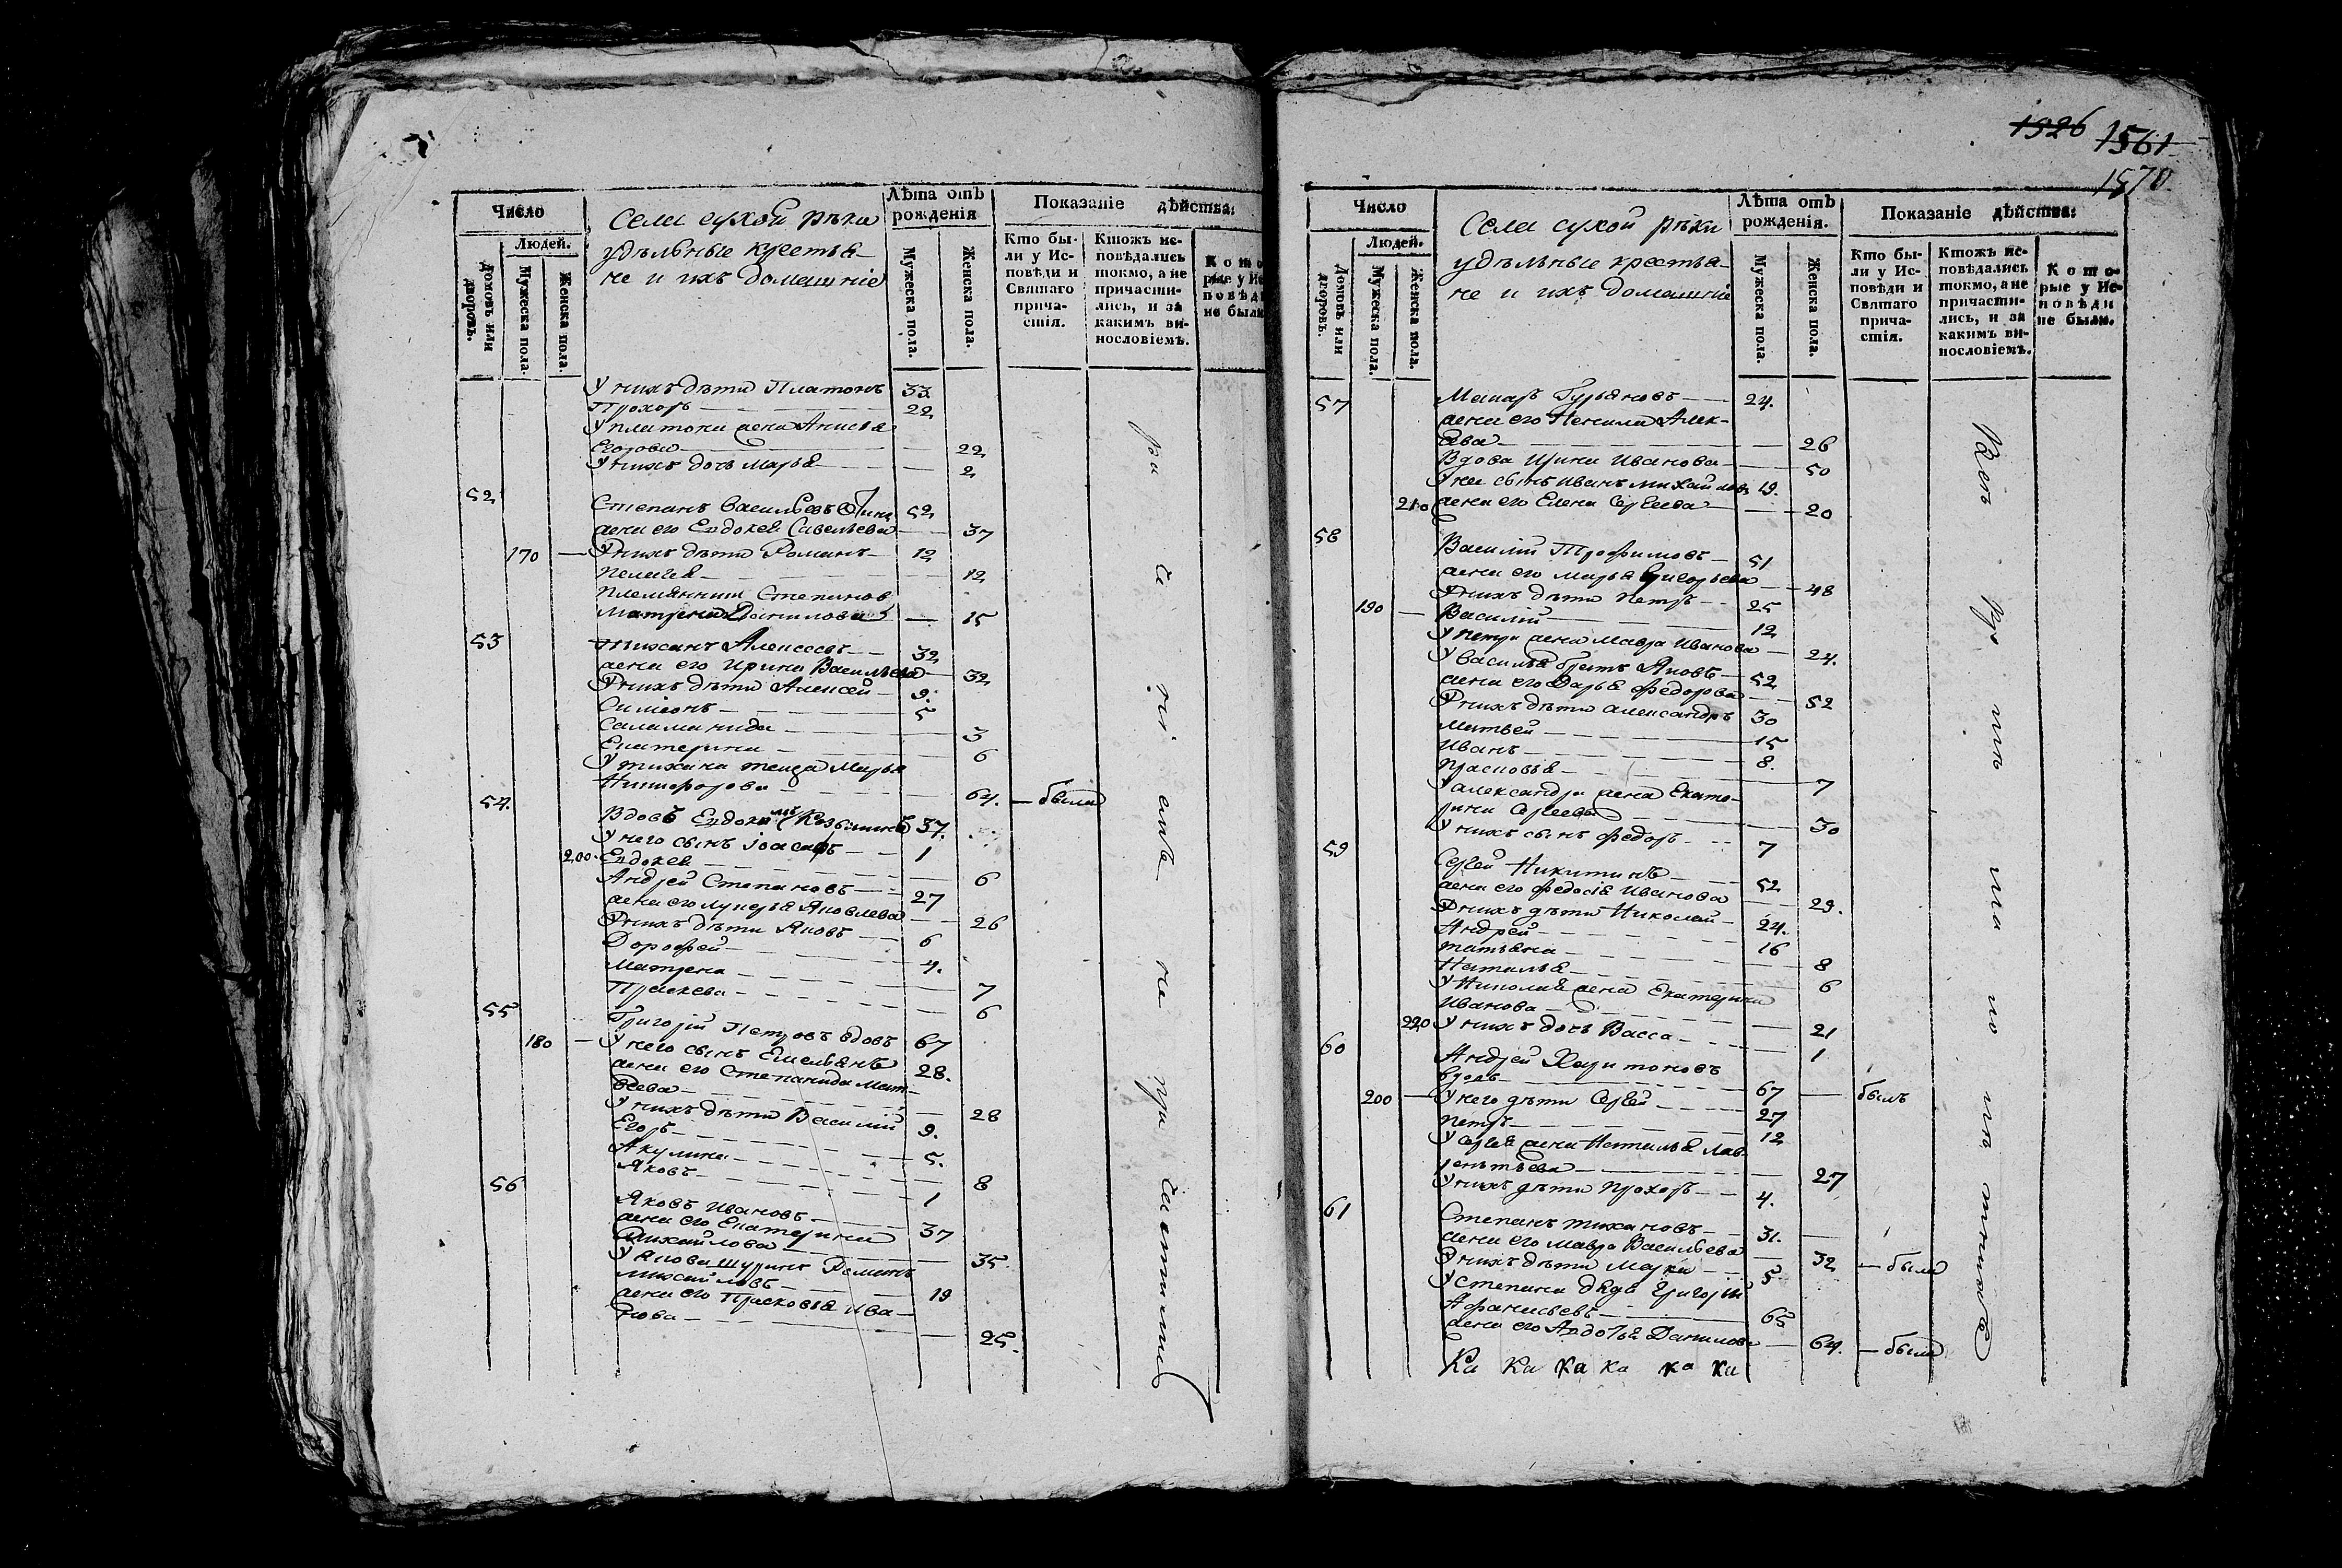 Число
Людей.
Домовъ или дворовъ.
Мужеска пола.
Женска пола.
Села сухой рѣки
удѣльные крестья-
не и ихъ домашніе
Лѣта отъ рожденія
Мужеска пола.
Женска пола.
Показаніе дѣйства:
Кто бы-
ли у Ис-
повѣди и
Святаго
прича-
стія.
Ктожъ ис-
повѣдались
токмо, а не
причасти-
лись, и за
какимъ ви-
нословіемъ.
Кото
рые у Ис
повѣди
не были
У нихъ дѣти Платонъ 33.
Прохоръ 22
У платона жена Анисья
Егорова 22
У нихъ дочь Марья 2
52
Степанъ Васильевъ 52
жена его Евдокея Савельева 37
170 У нихъ дѣти Романъ 12
Пелагея 12
племянница Степанова
Матрена Данилова 15
53 Тиханъ Алексеевъ 32
жена его Ирина Васильева 32
У нихъ дѣти Алексей 9.
Симеонъ 5
Саламанида 3
Екатерина 6
У тихана теща Марья
Никифорова 64. была
54. Вдовъ Евдокимъ Козьминъ 37.
У него сынъ іоасафъ 1
200. Евдокея 6
Андрей Степановъ 27
жена его лукерья Яковлева 26
У нихъ дѣти Яковъ 6
Дорофей 4.
Матрена 7
Праскева 6
55 Григорій Петровъ вдовъ 67
180 У него сынъ Емельянъ 28.
жена его Степанида Мат-
веева 28
У нихъ дѣти Василій 9.
Егоръ 5.
Акулина 8
Яковъ 1
56 Яковъ Ивановъ 37
жена его Екатерина
Михайлова 35
У Якова шуринъ Романъ
михайловъ 19
жена его Прасковья Ива-
нова 25.
1926 1561
1570.
Число
Людей.
Домовъ или дворовъ.
Мужеска пола.
Женска пола.
Села сухой рѣки
удѣльные крестья-
не и ихъ домашніе
Лѣта отъ рожденія.
Мужеска пола.
Женска пола.
Показаніе дѣйства:
Кто бы-
ли у Ис-
повѣди и
Святаго
прича-
стія.
Ктожъ ис-
повѣдались
токмо, а не
причасти-
лись, и за
какимъ ви-
нословіемъ.
Кото-
рые у Ис-
повѣди
не были.
57 Макаръ Гурьяновъ 24.
жена его Ненила Алек-
еева 26
Вдова Ирина Иванова 50
У нее сынъ иванъ михайловъ 19.
210 жена его Елена Сергеева 20
58 Василій Трофимовъ 51
жена его марья Григорьева 48
У нихъ дѣти петръ 25
190 Василій 12
У петра жена мавра Иванова 24.
У василья братъ Яковъ 52
жена его Дарья Федорова 52
У нихъ дѣти александръ 30
Матвей 15
Иванъ 8.
прасковья 7
У александра жена Екате-
рина Сергеева 30
У нихъ сынъ федоръ 7
59 Сергей Никитинъ 52
жена его федосія Иванова 29.
У нихъ дѣти Николай 24.
Андрей 16
татьяна 8
Наталья 6
У Николая жена Екатерина
Иванова 21
220 У нихъ дочь Васса 1
60 Андрей Харитоновъ
вдовъ 67 былъ
200 У него дѣти Сергей 27
петръ 12
У сергея жена Наталья Лав-
рентьева 27
У нихъ дѣти прохоръ 4.
61 Степанъ тихановъ 31.
жена его мавра Васильева 32 была
У нихъ дѣти Марка 5
У степана дядя Григорій
Афанасьевъ 65
жена его Авдотья Данилова 64. была
Ка Ка Ка Ка ка ка